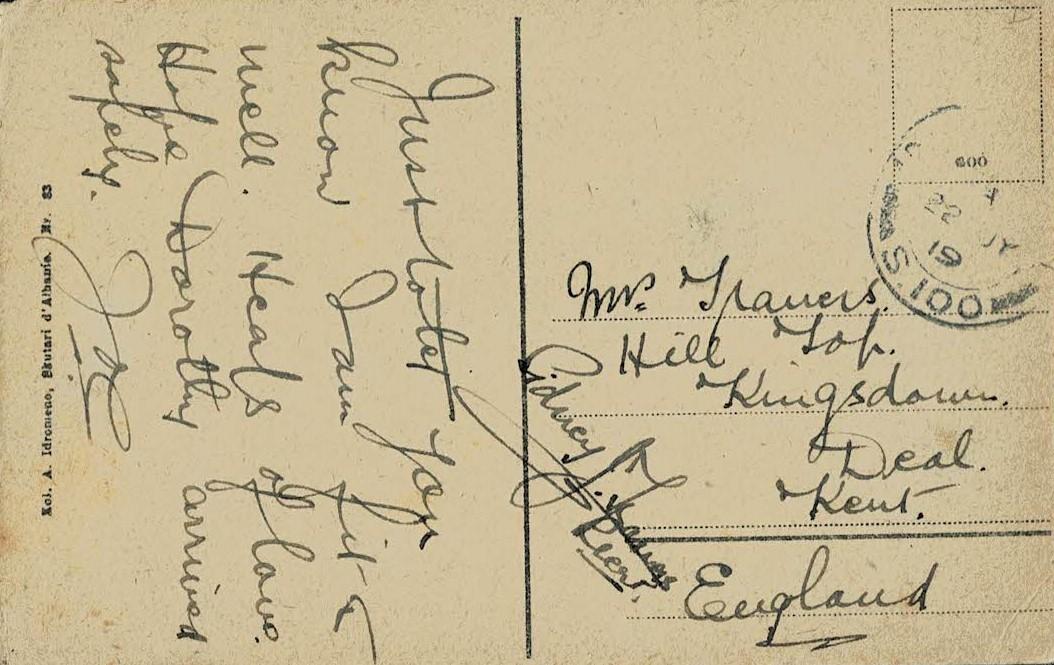 Just to let you
know I am fit &
well. Heaps of love.
Hope Dorothy arrived
safely.
Kol. A. Idromeno, Skutari d'Albanie. Nr. 83
600
22 JY
19
S.100
Mrs. Travers.
Hill Top.
Kingsdown.
Deal.
Kent.
England
Sidney R Travers
Lieut.